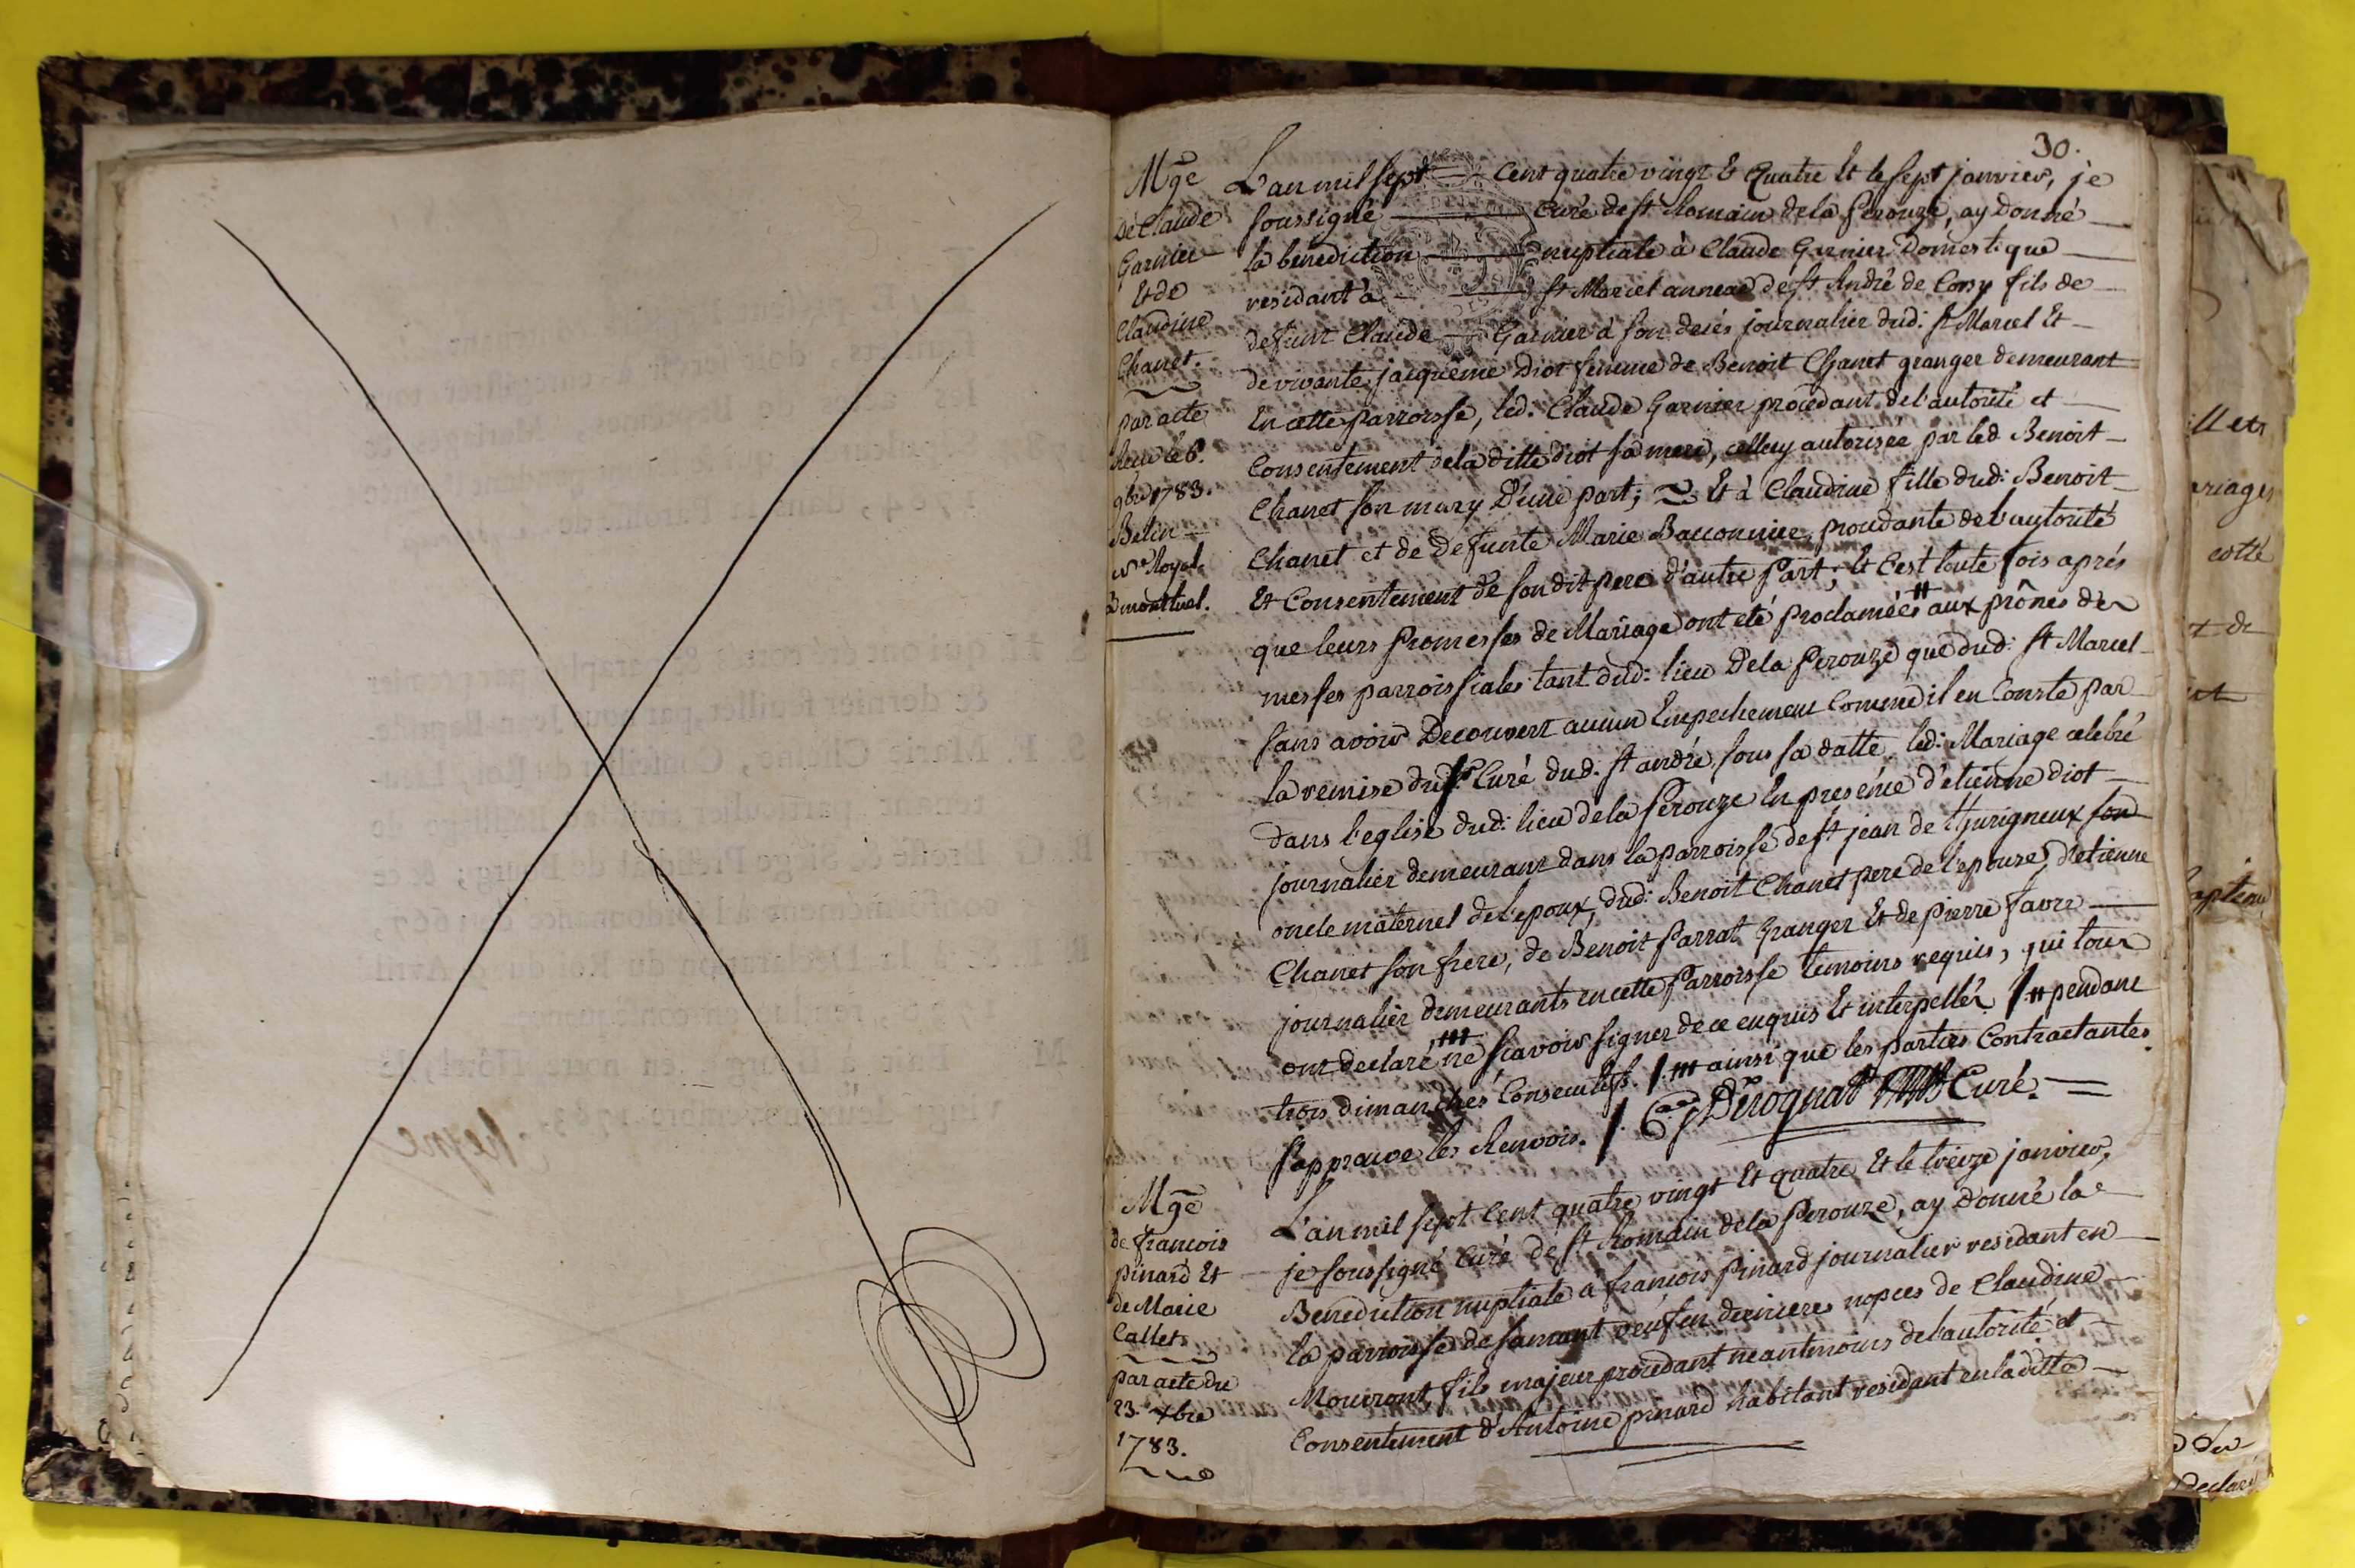 30.
Mge
de Claude
Garnier
Et de
Claudine
Chanet.
par acte
Receu le 6.
9bre 1783.
Belin
Nre Royal
à montluel.
L'an mil sept cent quatre vingt Et quatre Et le sept janvier, je
soussigné curé de st Romain de la Perouze, ay donné
la benediction nuptiale à Claude Garnier Domestique
residant à st Marcel annexe de st André de Corsy fils de
defunt Claude Garnier à son decés journalier dud: st Marcel Et
de vivante jacqueme diot femme de Benoit Chanet granger demeurant
En cette parroisse, led. Claude Garnier procedant de l'autorité et
Consentement de la ditte diot sa mere, celle cy autorisée par led Benoit
Chanet son mary D'une part; Et à Claudine fille dud: Benoit
Chanet et de Defunte Marie Bacconnier, procedante de l'autorité
Et Consentement de son dit pere d'autre Part; Et C'est toute fois aprés
que leurs Promesses de Mariage ont eté proclamées # aux prônes des
messes parroissiales tant dud: lieu de la Perouze que dud: st Marcel
sans avoir Decouvert aucun Empechement comme il en Conste par
la remise du sr Curé dud: st andré sous sa datte, led: Mariage celebré
dans l'eglise dud: lieu de la Perouze En presence d'etienne diot
journalier demeurant dans la parroisse de st jean de Thurigneux son
oncle maternel de l'epoux, dud: Benoit Chanet pere de l'epouze, d'etienne
Chanet son frere, de Benoit Parrat Granger Et de pierre favre
journalier demeurants en cette Parroisse temoins requis, qui tous
ont declaré ne sçavoir signer de ce enquis Et interpellés / # pendant
trois dimanches Consecutifs. / ainsi que les parties Contractantes.
J'approuve les Renvois. / Derognat Curé.
Mge
de françois
pinard Et
de Marie
Callet
par acte du
23. xbre
1783.
L'an mil sept Cent quatre vingt Et quatre Et le treize janvier,
je soussigné Curé de st Romain de la Perouze, ay donné la
Benediction nuptiale a françois Pinard journalier residant en
la parroisse de samant veuf en dernieres nopces de Claudine
Mouront, fils majeur procedant neantmoins de l'autorité et
Consentement d'Antoine pinard habitant residant en la ditte